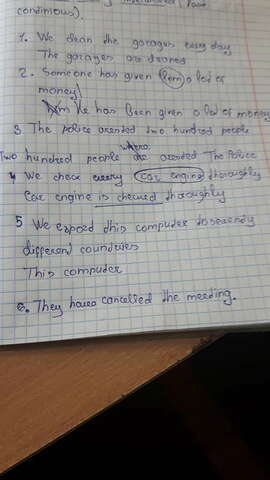 continious).
1. We clean the garages every day
The garages are cleaned
2. Someone has given him a lot of
money
He has been given a lot of money
3 The police arested two hundred people
Two hundred people where are arested The Police
4 We check every car engine thoroughly
Car engine is checked thoroughly
5 We expord this computer to seventy
different countries
This computer
6. They have cancelled the meeting.